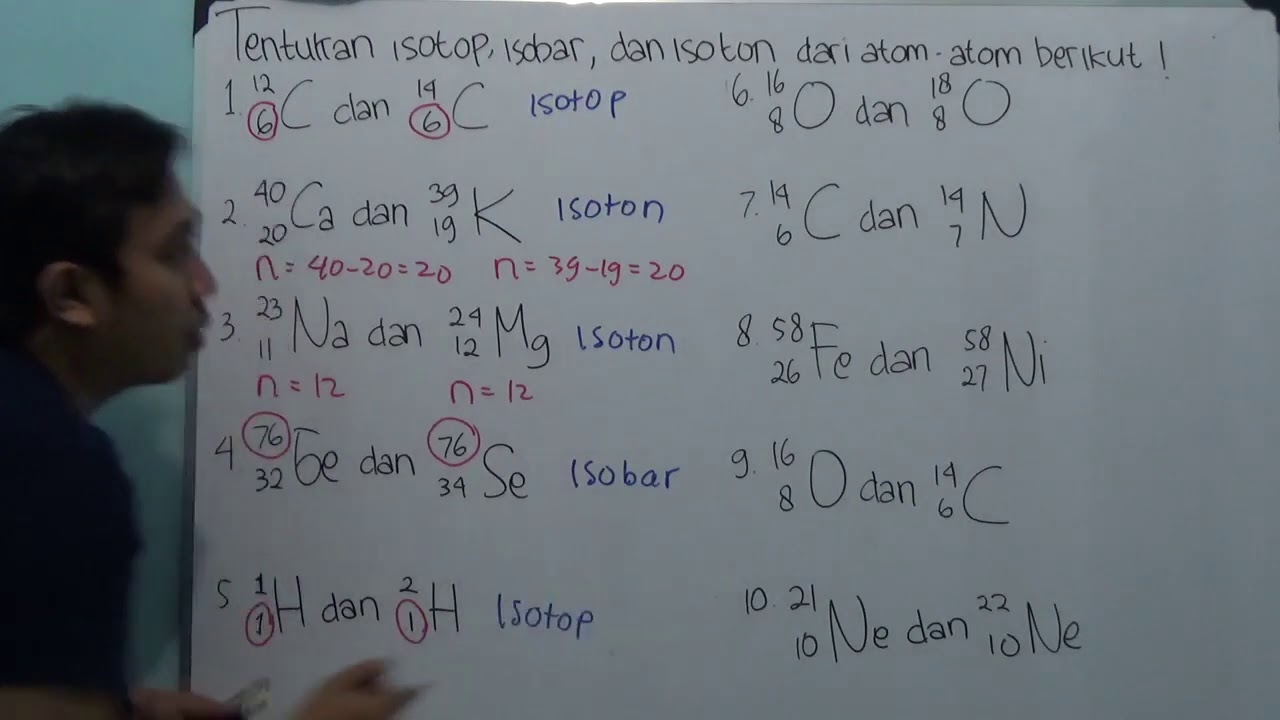 Tentukan isotop, isobar, dan isoton dari atom-atom berikut !
1. ¹²₆C dan ¹⁴₆C Isotop
2. ⁴⁰₂₀Ca dan ³⁹₁₉K Isoton
n = 40-20 = 20 n = 39-19 = 20
3. ²³₁₁Na dan ²⁴₁₂Mg Isoton
n = 12 n = 12
4 ⁷⁶₃₂Ge dan ⁷⁶₃₄Se Isobar
5 ¹₁H dan ²₁H Isotop
6. ¹⁶₈O dan ¹⁸₈O
7. ¹⁴₆C dan ¹⁴₇N
8. ⁵⁸₂₆Fe dan ⁵⁸₂₇Ni
9. ¹⁶₈O dan ¹⁴₆C
10. ²¹₁₀Ne dan ²²₁₀Ne